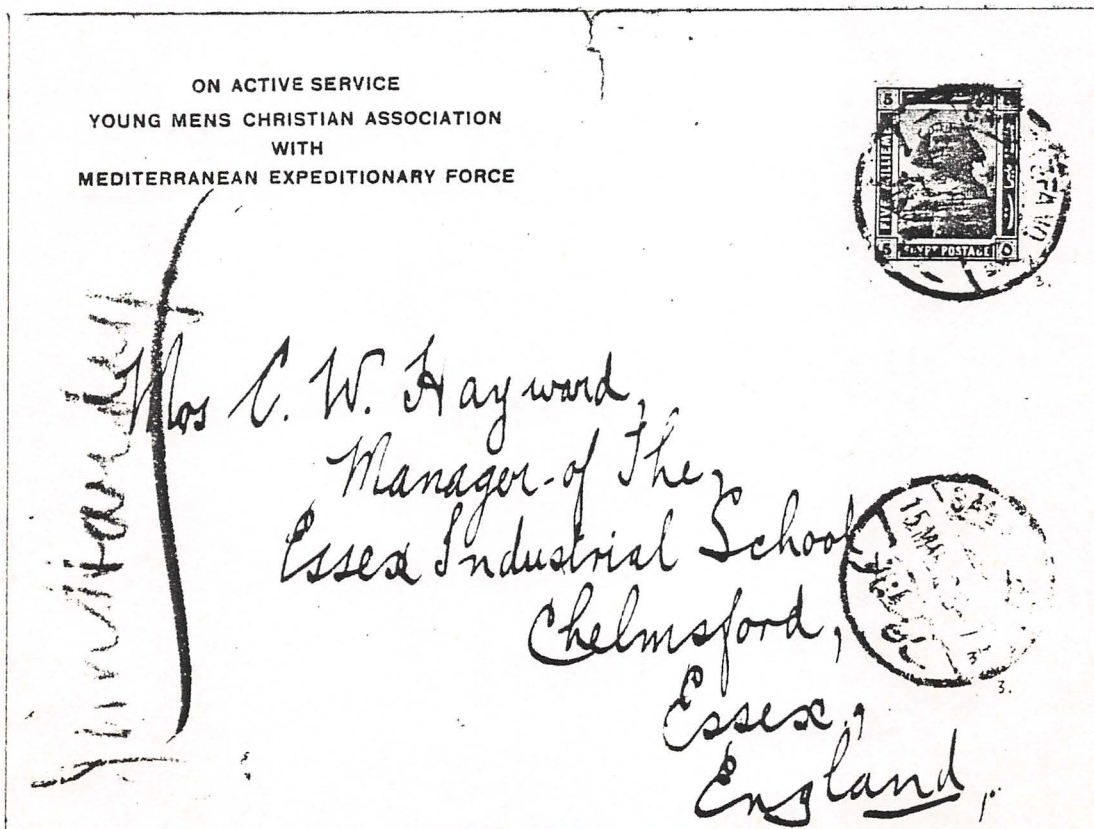 ON ACTIVE SERVICE
YOUNG MENS CHRISTIAN ASSOCIATION
WITH
MEDITERRANEAN EXPEDITIONARY FORCE
5
FIVE
5 EGYPT POSTAGE
3.
Mrs C. W. Hayward,
Manager of The,
Essex Industrial School
Chelmsford,
Essex,
England,
15 MA
3
3.